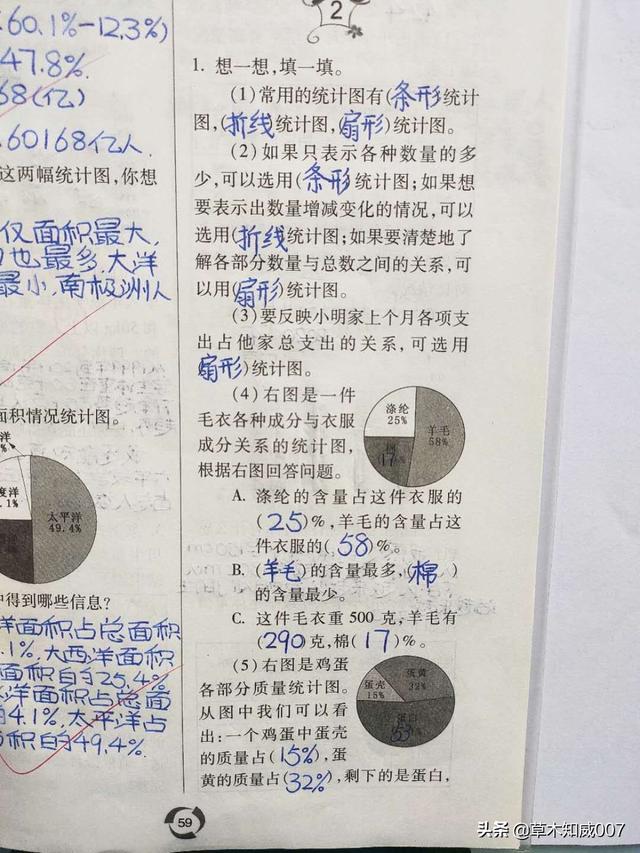 .60.1%-12.3%)
47.8%.
68(亿)
.60168亿人.
这两幅统计图,你想
仅面积最大,
也最多.大洋
最小.南极洲人
面积情况统计图。
洋
度洋
.1%
太平洋
49.4%
中得到哪些信息?
洋面积占总面积
.1%.大西洋面积
面积的25.4%
洋面积占总面
的4.1%.太平洋占
积的49.4%.
2
1. 想一想,填一填。
(1)常用的统计图有(条形)统计
图,(折线)统计图,(扇形)统计图。
(2)如果只表示各种数量的多
少,可以选用(条形)统计图;如果想
要表示出数量增减变化的情况,可以
选用(折线)统计图;如果要清楚地了
解各部分数量与总数之间的关系,可
以用(扇形)统计图。
(3)要反映小明家上个月各项支
出占他家总支出的关系,可选用
(扇形)统计图。
(4)右图是一件
毛衣各种成分与衣服
成分关系的统计图,
根据右图回答问题。
涤纶
25%
羊毛
58%
17%
A. 涤纶的含量占这件衣服的
(25)%,羊毛的含量占这
件衣服的(58)%。
B. (羊毛)的含量最多,(棉)
的含量最少。
C. 这件毛衣重500克,羊毛有
(290)克,棉(17)%。
(5)右图是鸡蛋
各部分质量统计图。
从图中我们可以看
出:一个鸡蛋中蛋壳
的质量占(15%),蛋
黄的质量占(32%),剩下的是蛋白,
蛋黄
32%
蛋壳
15%
蛋白
53
59
头条 @草木知威007